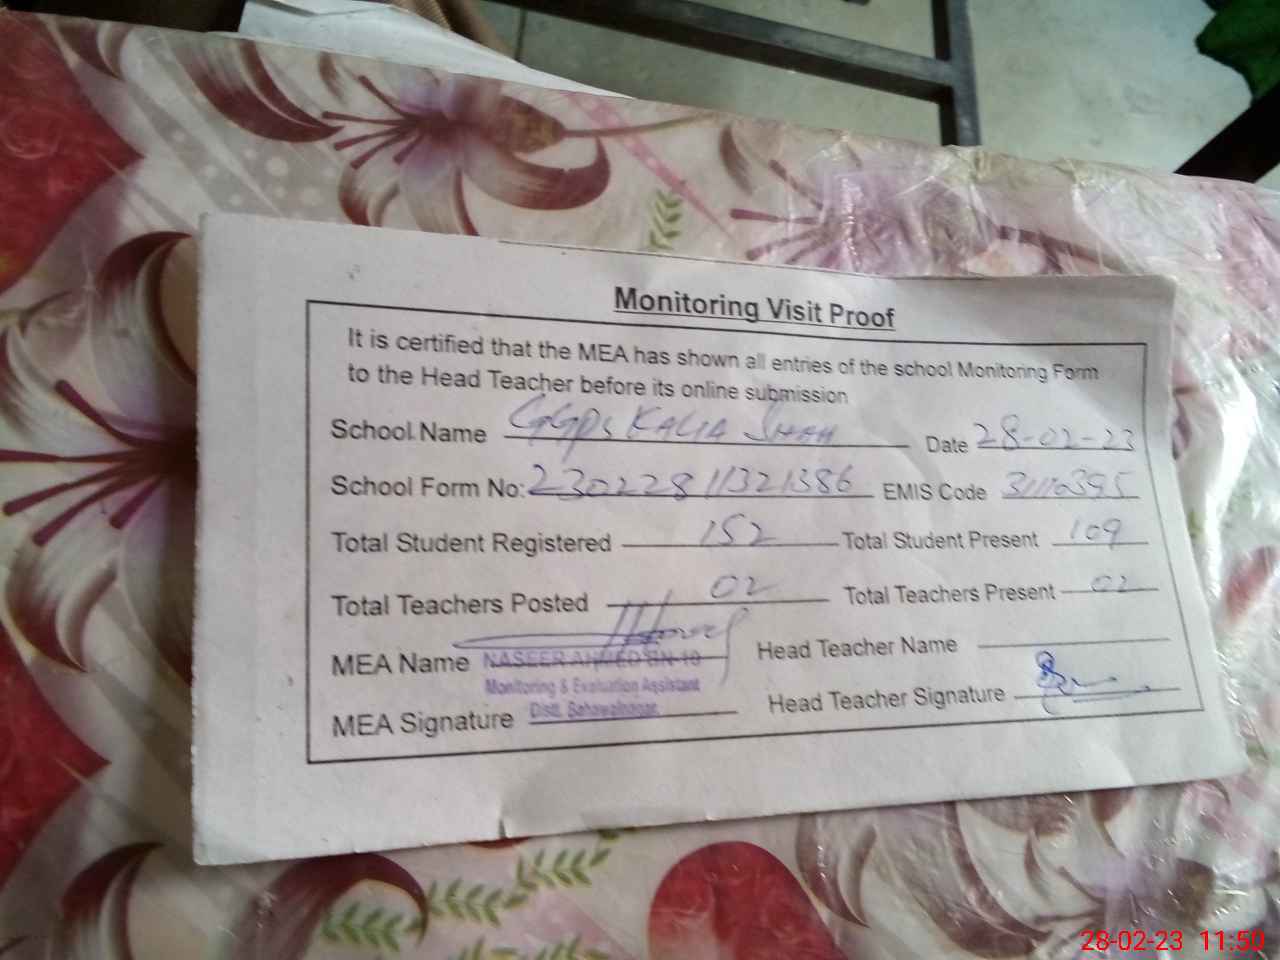 Monitoring Visit Proof
It is certified that the MEA has shown all entries of the school Monitoring Form
to the Head Teacher before its online submission
School Name GGPS KALIA SHAH Date 28-02-23
School Form No: 23022811321386 EMIS Code 31110395
Total Student Registered 152 Total Student Present 109
Total Teachers Posted 02 Total Teachers Present 02
MEA Name NASEER AHMED BN-10 Head Teacher Name
Monitoring & Evaluation Assistant
MEA Signature Distt. Bahawalnagar Head Teacher Signature
28-02-23 11:50